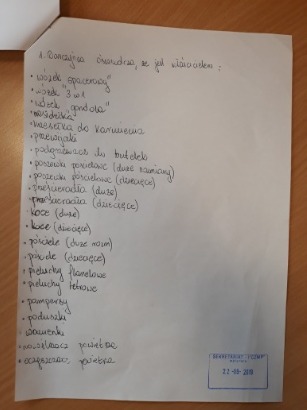 1. Darczyńca oświadcza, że jest właścicielem :
• wózek spacerowy"
• wózek "3 w 1
• wózek "gondola"
• nosidełka
• krzesełka do karmienia
• przewijaki
• podgrzewacz do butelek
• poszewka pościelowe (duże rozmiary)
• poszewka pościelowe (dziecięce)
• prześcieradła (duże)
• prześcieradła (dziecięce)
• koce (duże)
• koce (dziecięce)
• pościele (duże rozm)
• pościele (dziecięce)
• pieluchy flanelowe
• pieluchy tetrowe
• pampersy
• poduszki
• wanienki
• nawilżacz powietrza
• oczyszczacz powietrza